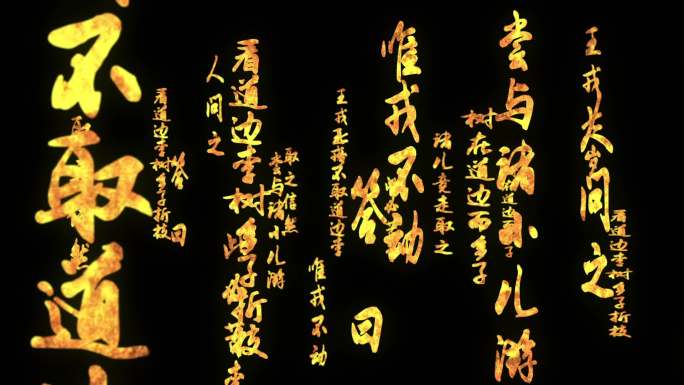 看道边李树多子折枝
王戎七岁
问之
尝与诸小儿游
树在道边而多子
诸儿竞走取之
唯戎不动
答曰
不取道边李
唯戎不动
取之信然
尝与诸小儿游
看道边李树多子折枝
人问之
答曰
看道边李树多子折枝
不取道